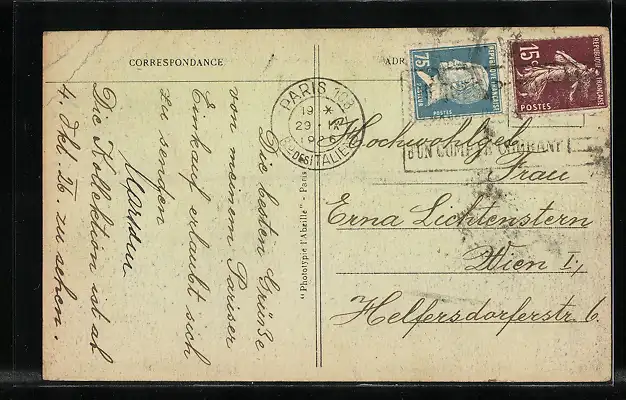 CORRESPONDANCE
Die besten Grüße
von meinem Pariser
Einkauf erlaubt sich
zu senden
Die Kollektion ist ab
4. Okt. 26. zu sehen.
"Photolypie l'Abeille" - Paris
PARIS 108
19 *
29 - IX
1926
DES ITALIENS
75c
REPUBLIQUE FRANÇAISE
POSTES
15c
REPUBLIQUE FRANÇAISE
POSTES
Hochwohlgeb.
Frau
Erna Lichtenstern
Wien I.,
Helferstorferstr. 6.